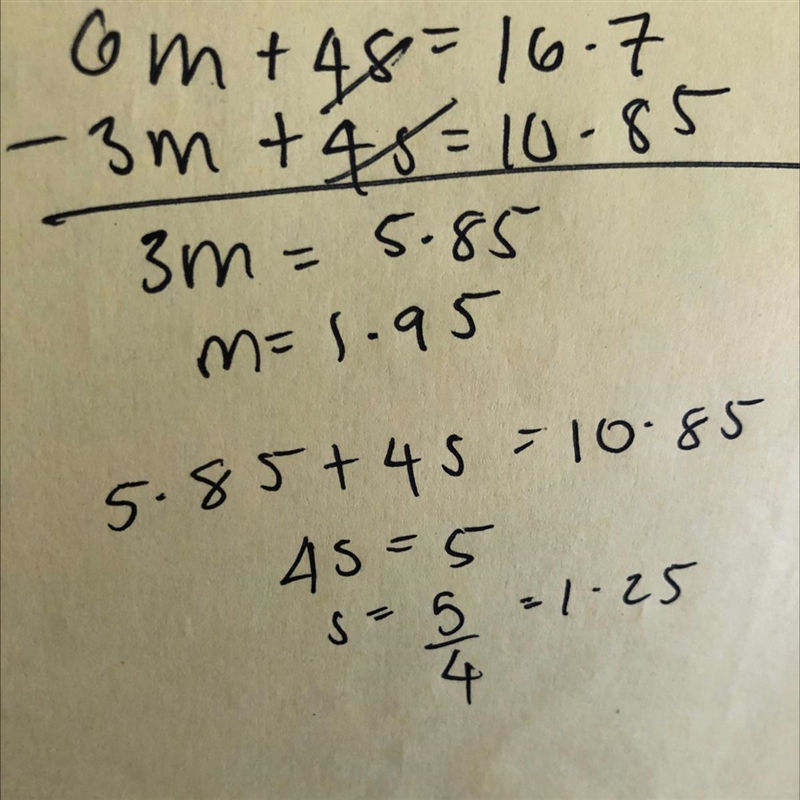 6m + 4s = 16.7
- 3m + 4s = 10.85
3m = 5.85
m = 1.95
5.85 + 4s = 10.85
4s = 5
s = 5/4 = 1.25